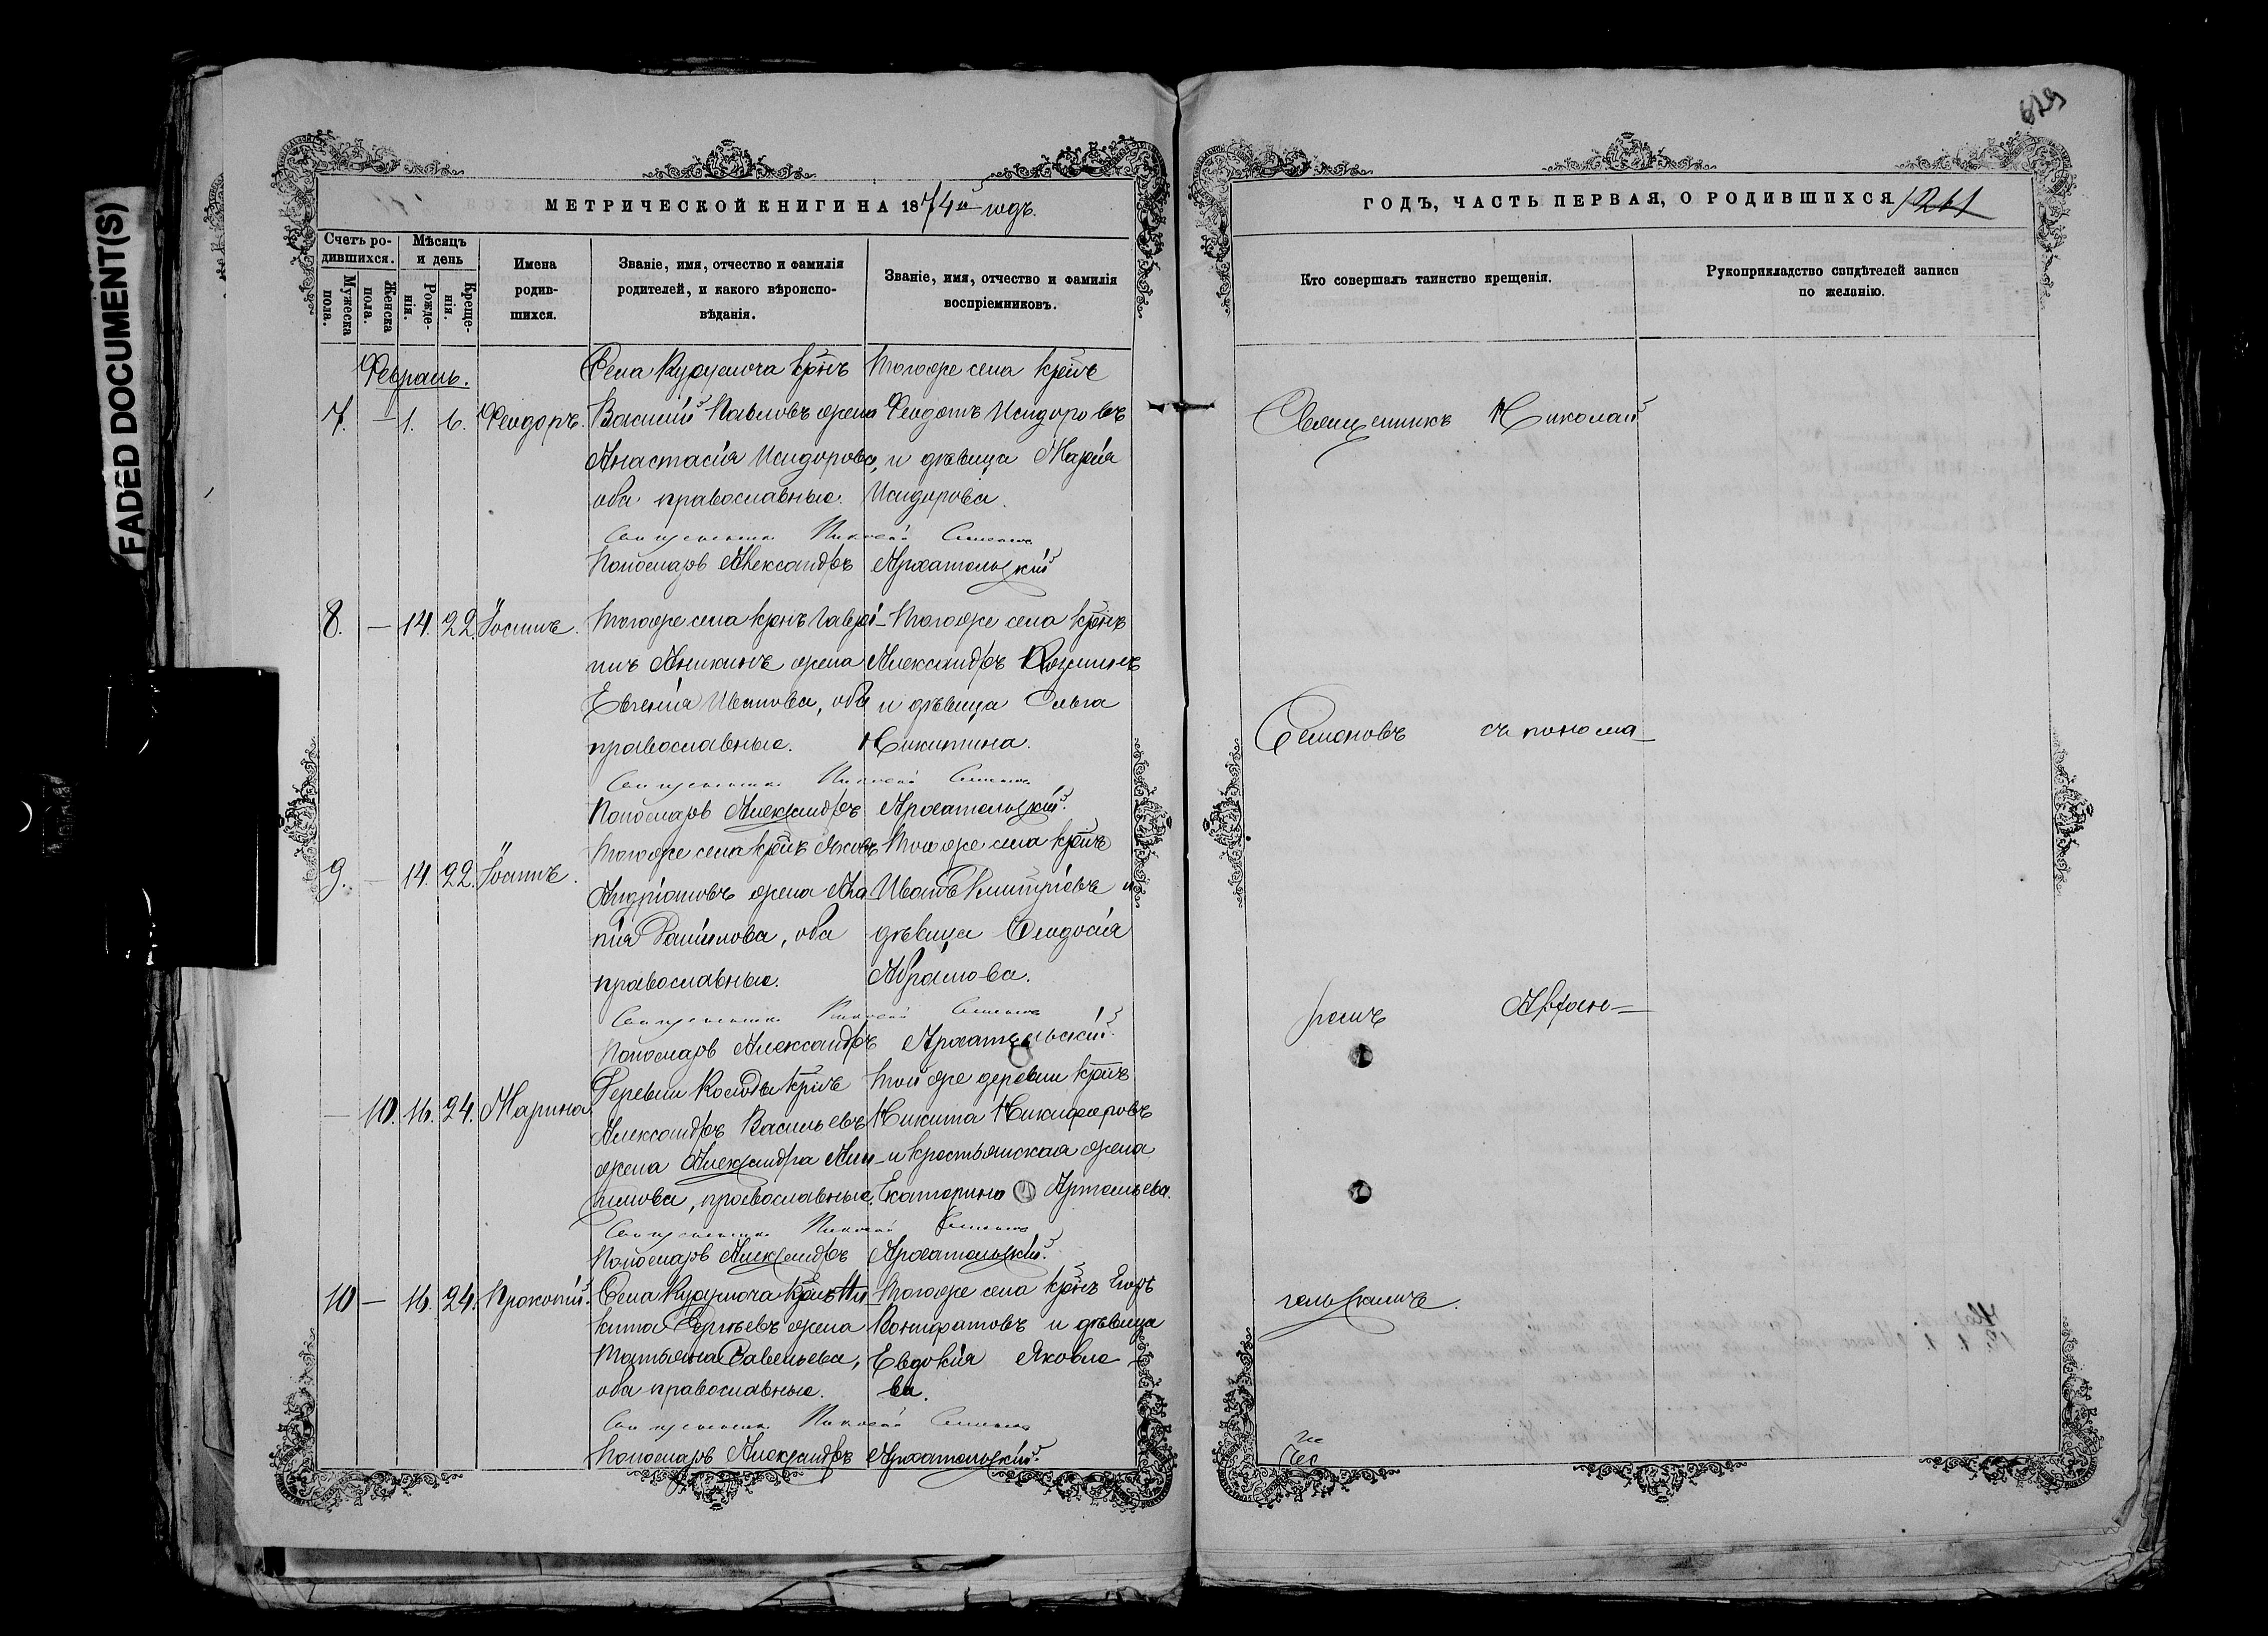 FADED DOCUMENT(S)
629
МЕТРИЧЕСКОЙ КНИГИ НА 1874й годъ.
Счетъ родившихся.
Мужеска пола.
Женска пола.
Мѣсяцъ и день
Рожденія.
Крещенія.
Имена родившихся.
Званіе, имя, отчество и фамилія
родителей, и какого вѣроиспо-
вѣданія.
Званіе, имя, отчество и фамилія
воспріемниковъ.
Февраль.
7. — 1. 6. Феодоръ.
Села крнъ
Василій Павловъ жена
Анастасія Исидорова,
оба православные.
Тогоже села крнъ
Феодотъ Исидоровъ
и дѣвица Марія
Исидорова.
Священникъ Николай Семеновъ
Пономарь Александръ Архангельскій
8. — 14. 22. Іоаннъ.
Тогоже села крнъ Гаврі-
илъ Аникинъ жена
Евгенія Иванова, оба
православные.
Тогоже села крнъ
Александръ Козминъ
и дѣвица Ольга
Никитина.
Священникъ Николай Семеновъ
Пономарь Александръ Архангельскій.
9. — 14. 22. Іоаннъ.
Тогоже села крнъ Яковъ
Андріановъ жена
Данилова, оба
православные.
Тогоже села крнъ
Иванъ Дмитріевъ и
дѣвица Феодосія
Абрамова.
Священникъ Николай Семеновъ
Пономарь Александръ Архангельскій.
— 10. 16. 24. Марина
Деревни крнъ
Александръ Васильевъ
жена Александра
православные.
Той же деревни крнъ
Никита Никифоровъ
и крестьянская жена
Екатерина Артемьева.
Священникъ Николай Семеновъ
Пономарь Александръ Архангельскій.
10 — 16. 24. Прокопій.
Села крнъ Ни-
кита Сергѣевъ жена
Татьяна Савельева,
оба православные.
Тогоже села крнъ Егоръ
Вонифатовъ и дѣвица
Евдокія Яковле-
ва.
Священникъ Николай Семеновъ
Пономарь Александръ Архангельскій.
ГОДЪ, ЧАСТЬ ПЕРВАЯ, О РОДИВШИХСЯ 1261
Кто совершалъ таинство крещенія.
Рукоприкладство свидѣтелей записи
по желанію.
Священникъ Николай
Семеновъ съ понома-
ремъ Архан-
гельскимъ.